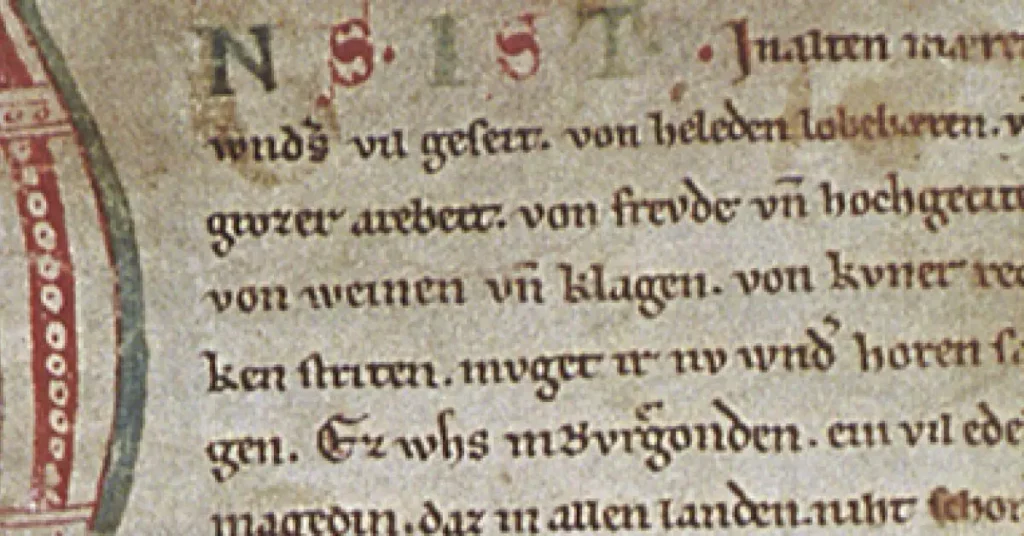 NS · IST · In alten mære
wnd̾s vil geseit. von heleden lobebæren. v
grozer arebeit. von frevde vn̄ hochgecit
von weinen vn̄ klagen. von kvner rec
ken striten. mvget ir nv wnd̾ horen sa
gen. Ez whs in Bvrgonden. ein vil ede
magedin. daz in allen landen. niht schon